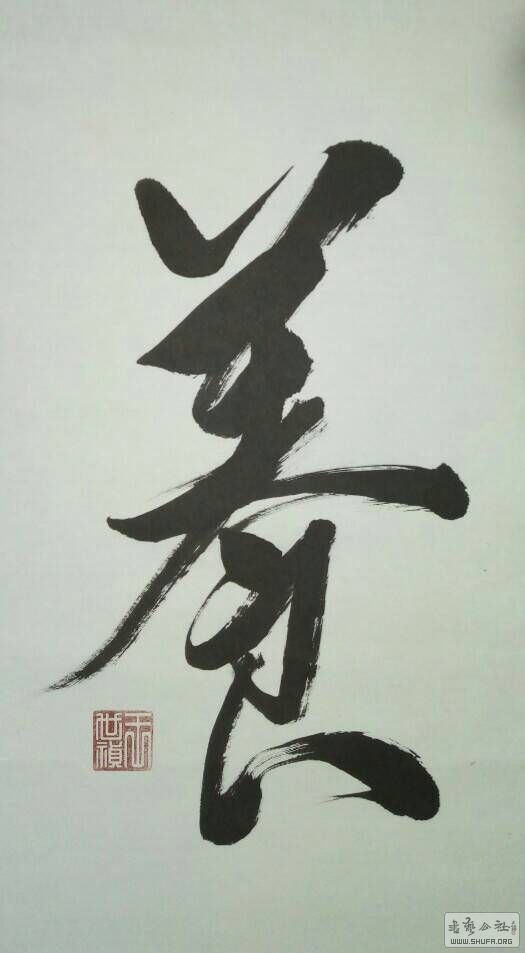 養
書藝公社
WWW.SHUFA.ORG